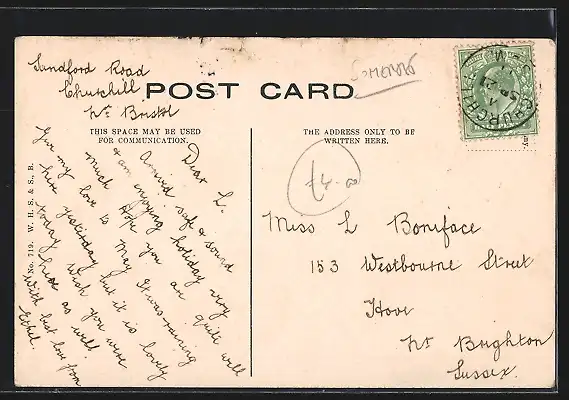 Sandford Road
Churchill
Nr Bristol
POST CARD
SOMERSET
CHURCHILL
THIS SPACE MAY BE USED
FOR COMMUNICATION.
THE ADDRESS ONLY TO BE
WRITTEN HERE.
Dear L.
Arrived safe & sound
& am enjoying holiday very
much Hope you are quite well
Give my love to May It was raining
here yesterday but it is lovely
today Wish you were
here as well.
With best love from
Ethel.
£4-00
Miss L Boniface
153 Westbourne Street
Hove
Nr Brighton
Sussex.
No. 719. W. H. S. & S., B.